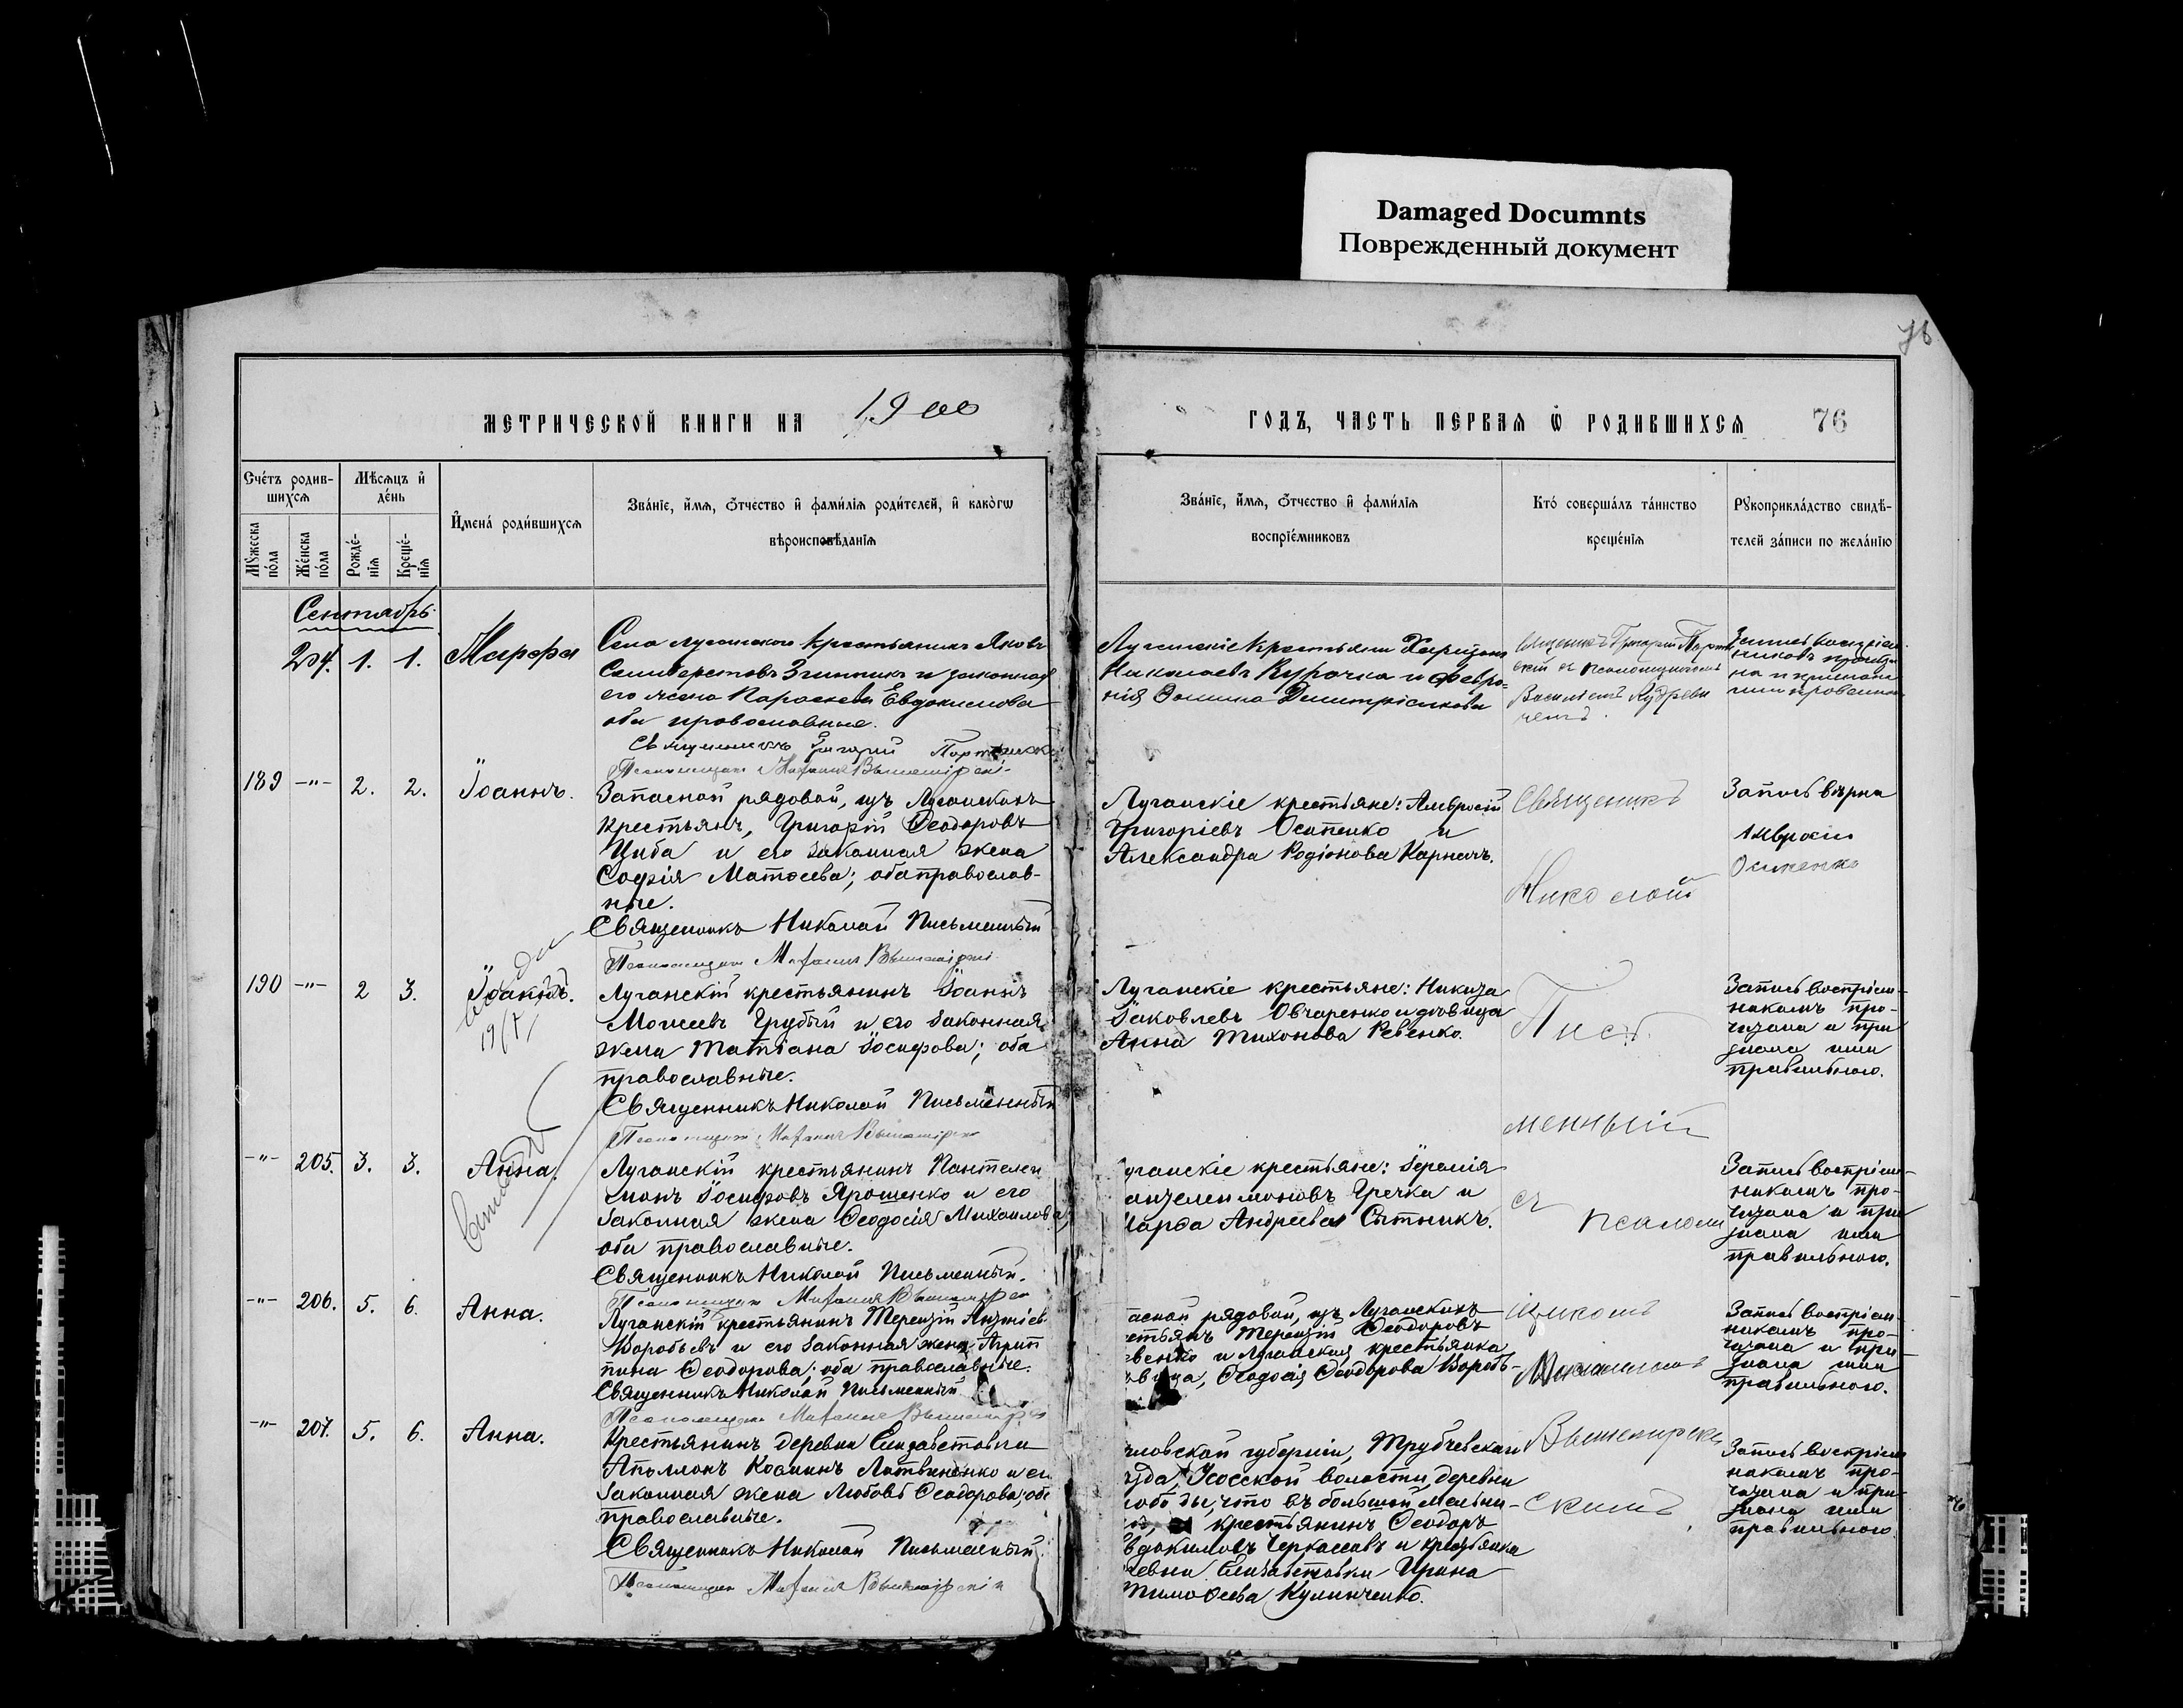 Damaged Documnts
Поврежденный документ
76
метрической книги на 1900
годъ, часть первая ѿ родившихся 76
Счетъ родив-
шихся
Мѣсяцъ и
день
Мужеска
пола
Женска
пола
Рожде-
нія
Креще-
нія
Имена родившихся
Званіе, имя, отчество и фамилія родителей, и какогѡ
вѣроисповѣданія
Званіе, имя, отчество и фамилія
воспріемниковъ
Кто совершалъ таинство
крещенія
Рукоприкладство свидѣ-
телей записи по желанію
Сентябрь
204. 1. 1. Марфа
Села Луганского крестьянинъ Яковъ
Селиверстовъ и законная
его жена Параскева Евдокимова
оба православные.
Священникъ Григорій
Луганскіе крестьяне Харитонъ
Николаевъ Курочка и Февро-
нія Димитріенкова
Священникъ Григорій
скій съ псаломщикомъ
Василіемъ Кудреви
чемъ.
189 -"- 2. 2. Іоаннъ.
Запасной рядовой, изъ Луганскихъ
крестьянъ, Григорій Ѳеодоровъ
Цыба и его законная жена
Софія Матѳеева; оба православ-
ные.
Священникъ Николай Письменный
Луганскіе крестьяне: Амвросій
Григоріевъ Осипенко и
Александра Родіонова Карначъ.
Священникъ
Николай
Запись вѣрна
Амвросій
Осипенко
190 -"- 2 3. Іоаннъ.
Луганскій крестьянинъ Іоаннъ
Моисеевъ Грубый и его законная
жена Татіана Іосифова; оба
православные.
Священникъ Николай Письменный
Луганскіе крестьяне: Никита
Іаковлевъ Овчаренко и дѣвица
Анна Тихонова Ревенко.
Пись
менный
Запись воспріем-
никамъ про-
читана и при
знана ими
правильною.
-"- 205. 3. 3. Анна.
Луганскій крестьянинъ Пантелеи
монъ Іосифовъ Ярошенко и его
законная жена Ѳеодосія Михаилова;
оба православные.
Священникъ Николай Письменный.
уганскіе крестьяне: Іеремія
антелеимоновъ Гречка и
Марѳа Андреева Сытникъ.
съ псалом
Запись воспріем-
никамъ про-
читана и при
знана ими
правильною.
-"- 206. 5. 6. Анна.
Луганскій крестьянинъ Терентій
Воробьевъ и его законная жена Агрип
пина Ѳеодорова; оба православные.
Священникъ Николай Письменный
асной рядовой, изъ Луганскихъ
естьянъ Терентій Ѳеодоровъ
евенко и Луганская крестьянка
Ѳеодосія Ѳеодорова Воробь-
щикомъ
Запись воспріем-
никамъ про-
читана и при-
знана ими
правильною.
-"- 207. 5. 6. Анна.
Крестьянинъ деревни Елизаветовки
Аполлонъ Косминъ Литвиненко и его
законная жена Любовь Ѳеодорова; оба
православные.
Священникъ Николай Письменный.
рловской губерніи, Трубчевскаго
ѣзда, Усосской волости, деревни
лободы, что въ большой Мельни-
крестьянинъ Ѳеодоръ
вдокимовъ Черкасовъ и крестьянка
ревни Елизаветовки Ирина
Тимоѳеева Кулинченко.
Вышемірев
скимъ
Запись воспріем
никамъ про-
читана и при-
знана ими
правильною.